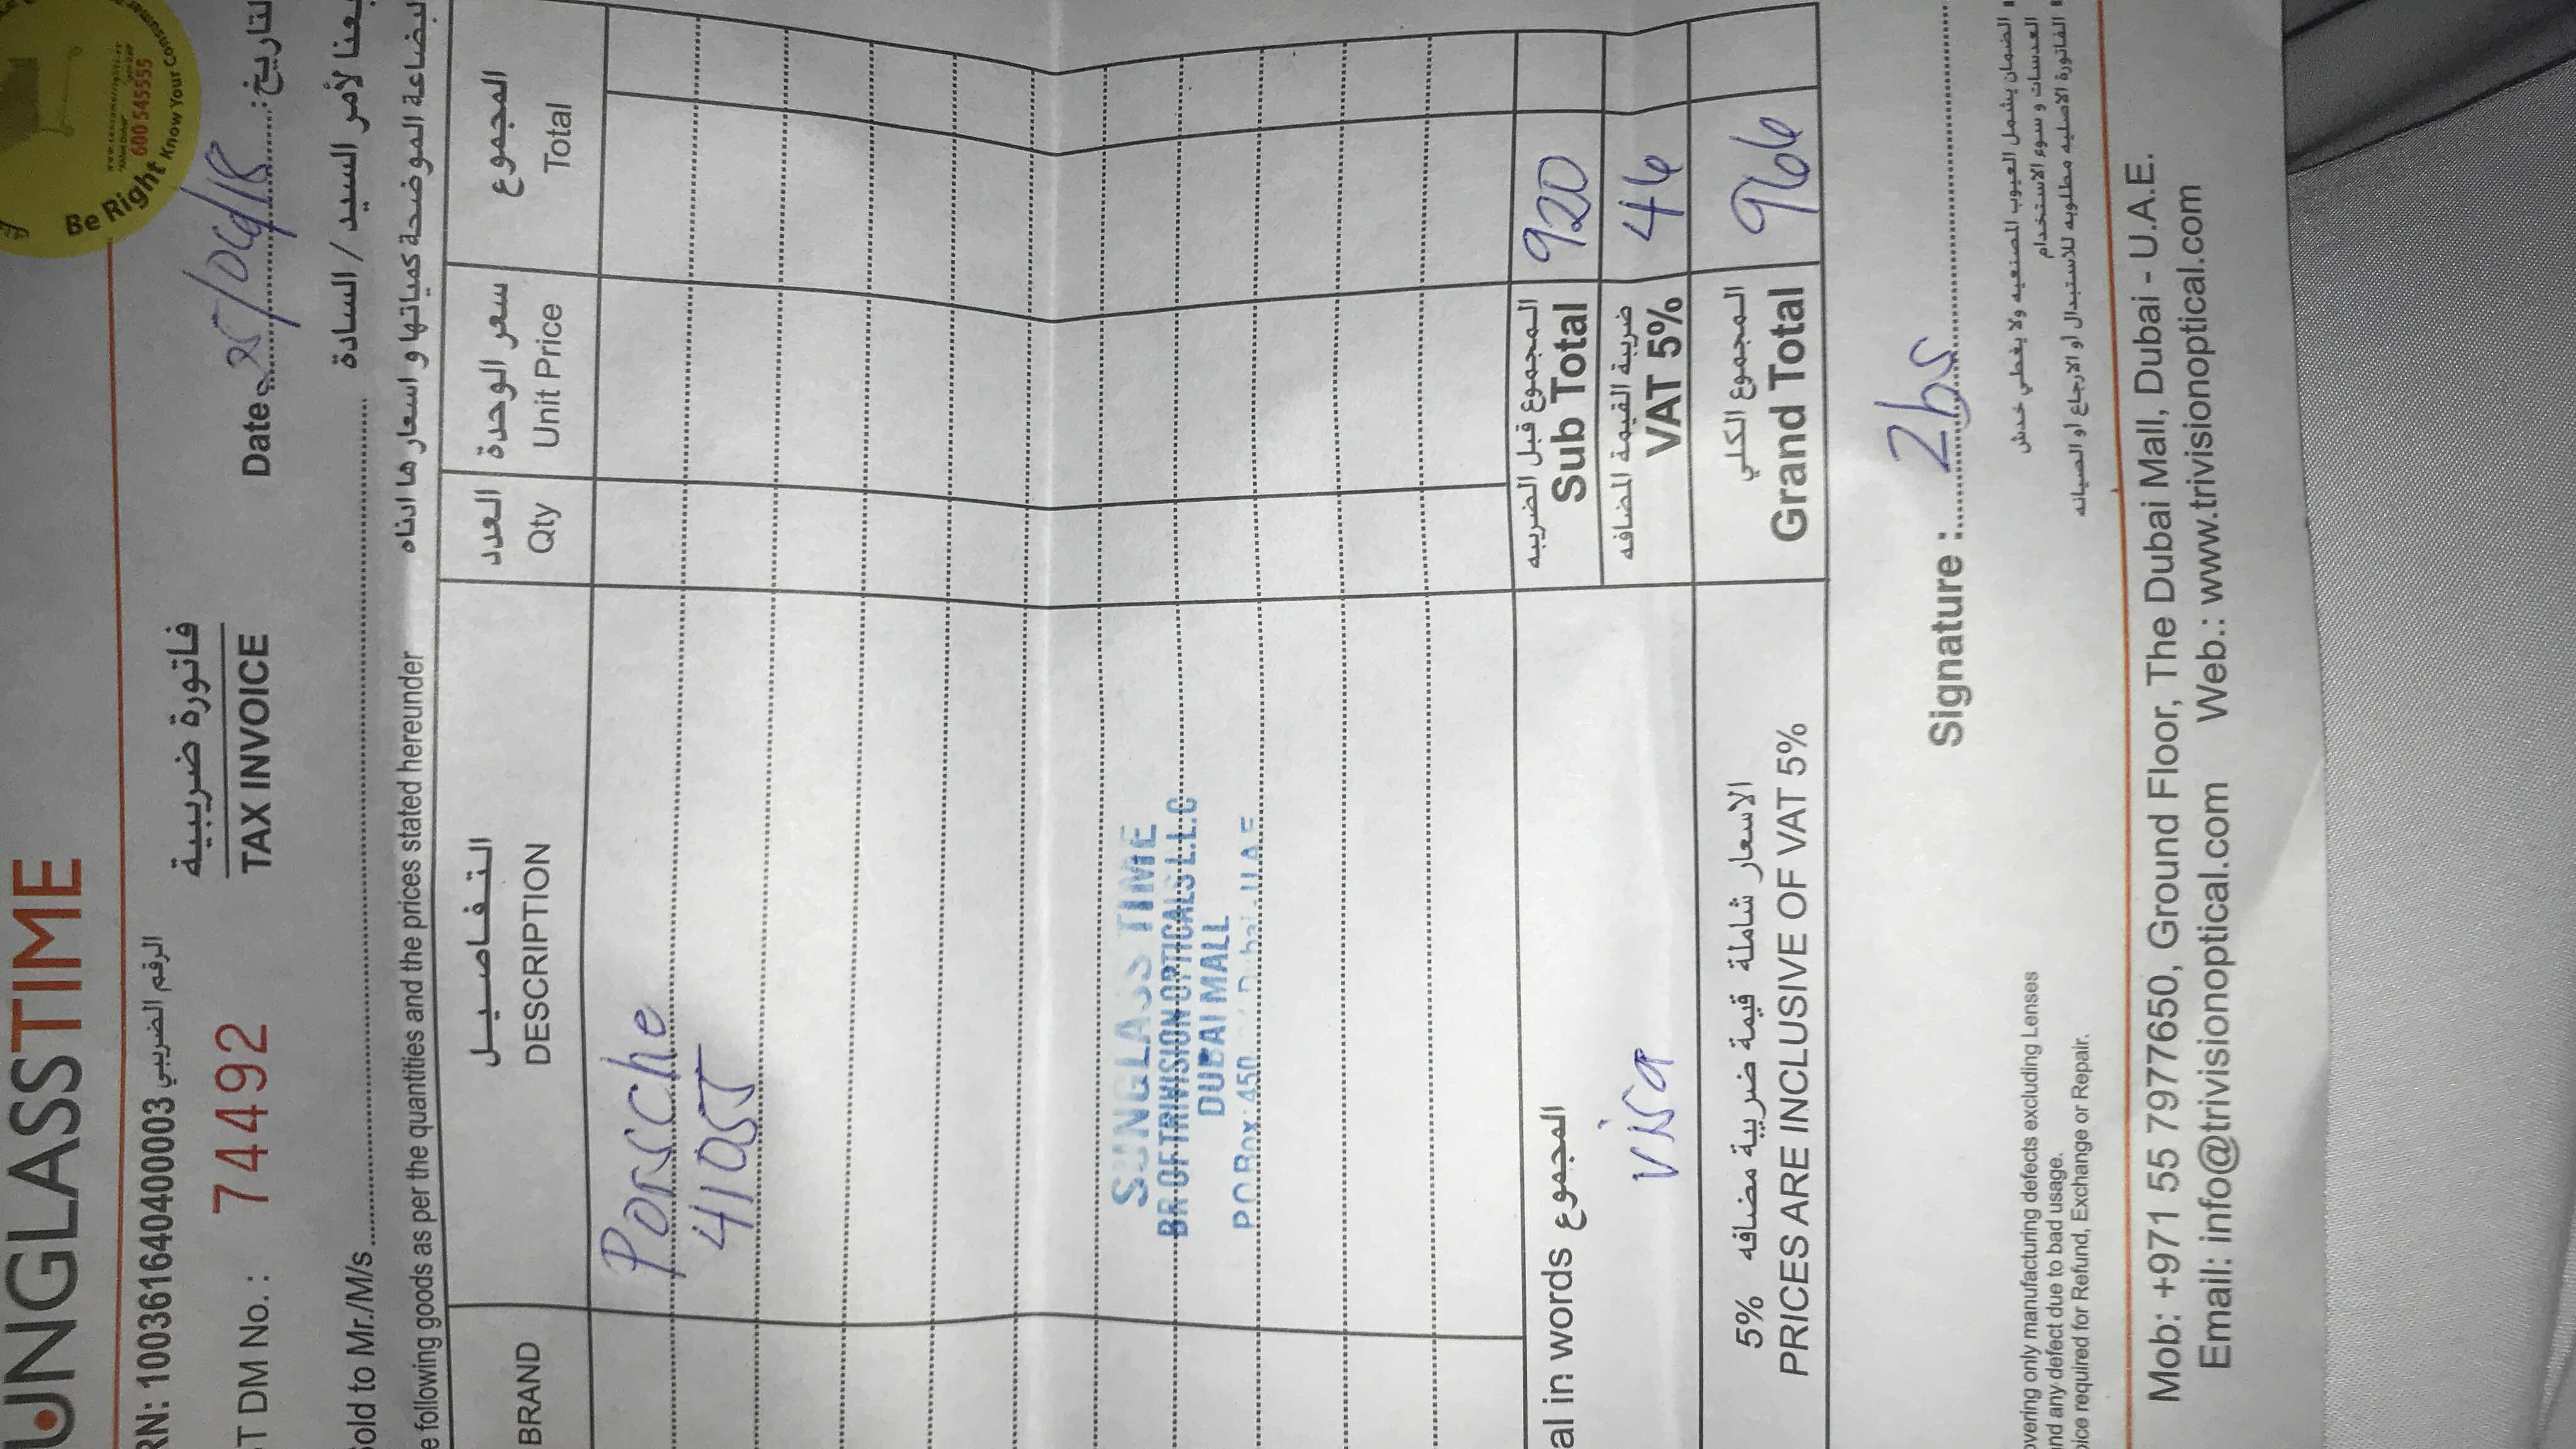 UNGLASSTIME
Be Right Know Your
600 545555
RN: 100361640400003 الرقم الضريبي
فاتورة ضريبية
T DM No. : 74492
TAX INVOICE
Date 25/06/18 لتاريخ:
old to Mr./M/s. بعنا لأمر السيد / السادة
e following goods as per the quantities and the prices stated hereunder لبضاعة الموضحة كمياتها و اسعار ها ادناه
التفاصيل العدد سعر الوحدة المجموع
BRAND DESCRIPTION Qty Unit Price Total
Porsche
41055
SUNGLASS TIME
BR OF TRIVISION OPTICALS L.L.C
DUBAI MALL
P.O.Box: 450 Dubai - U.A.E
al in words المجموع
visa
المجموع قبل الضريبه
Sub Total 920
ضريبة القيمة المضافه
VAT 5% 46
الاسعار شاملة قيمة ضريبة مضافه 5%
PRICES ARE INCLUSIVE OF VAT 5%
المجموع الكلي
Grand Total 966
Signature :
overing only manufacturing defects excluding Lenses
nd any defect due to bad usage.
oice required for Refund, Exchange or Repair.
الضمان يشمل العيوب المصنعيه ولا يغطي خدش
العدسات و سوء الاستخدام
الفاتورة الاصليه مطلوبه للاستبدال أو الارجاع أو الصيانه
Mob: +971 55 7977650, Ground Floor, The Dubai Mall, Dubai - U.A.E.
Email: info@trivisionoptical.com Web.: www.trivisionoptical.com